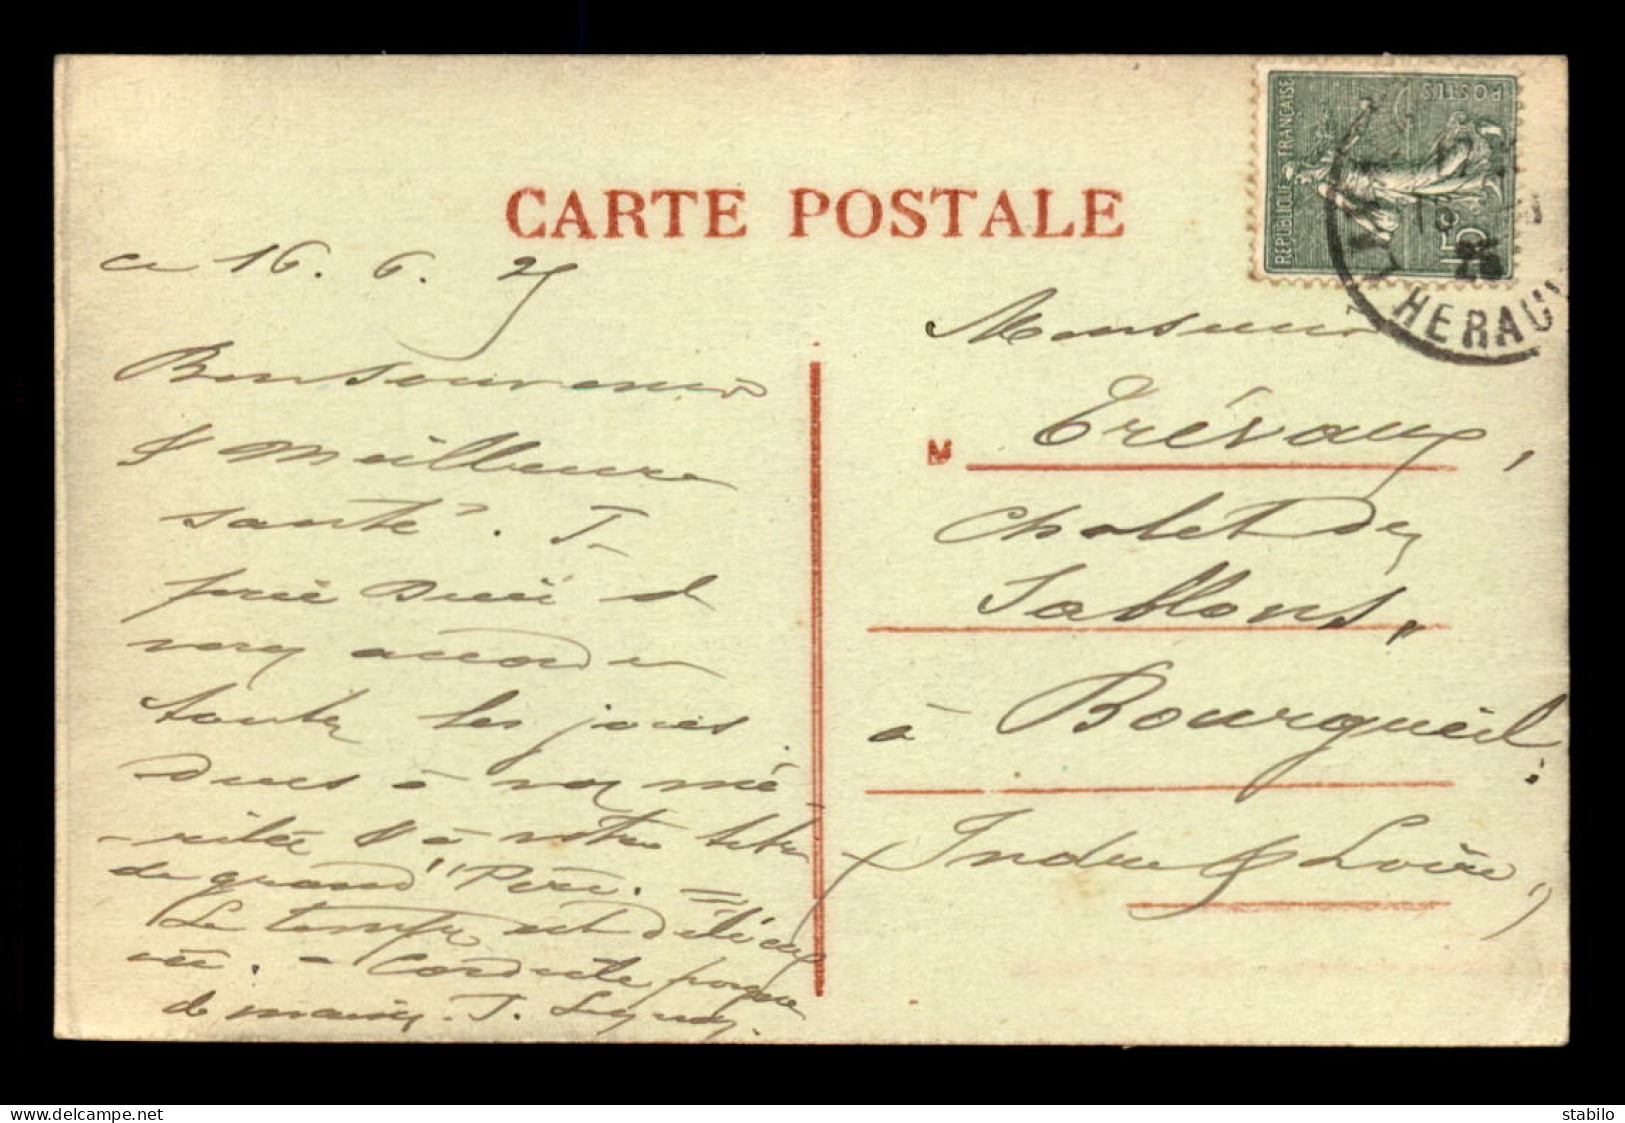 CARTE POSTALE
RÉPUBLIQUE FRANÇAISE
POSTES
15
HERAU
25
ce 16. 6. 25
Bon souvenir
& Meilleure
santé. Je
prie Dieu de
vous accorder
toutes les joies
dues à vos mé-
-rites & à votre titre
de grand'Père. =
Le temps est délicieux
ici. - Cordiale poignée
de mains. J.
Monsieur
M Trévaux,
Chalet des
Sablons,
à Bourgueil.
Indre & Loire,
delcampe.net
stabilo